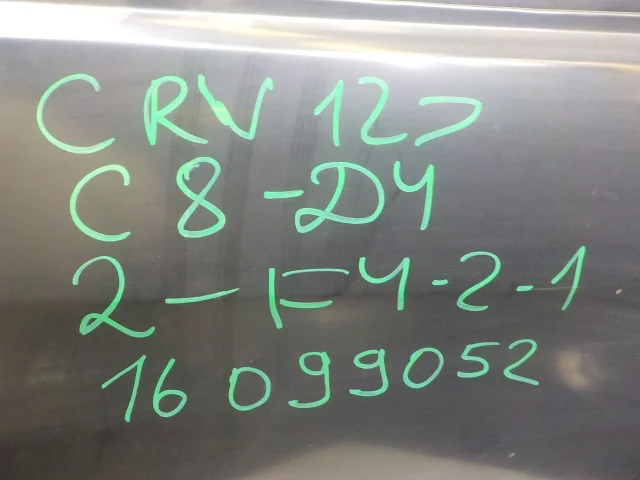 CRV 12>
C8-D4
2-F4-2-1
16099052